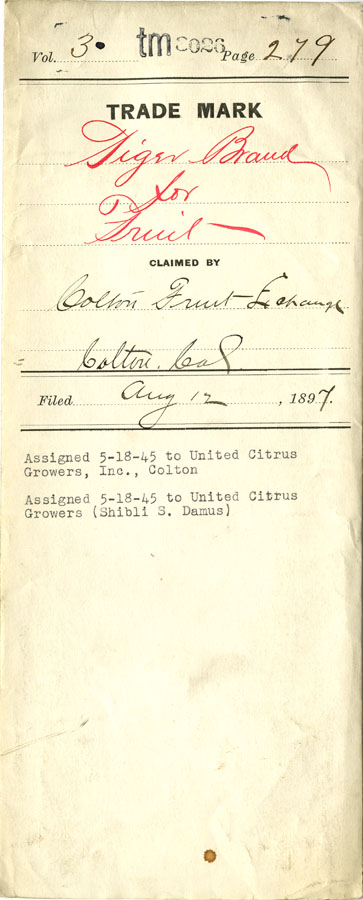 Vol. 3. tm 3026 Page 279
TRADE MARK
Tiger Brand
for
Fruit
CLAIMED BY
Colton Fruit Exchange
Colton. Cal.
Filed Aug 12, 1897.
Assigned 5-18-45 to United Citrus
Growers, Inc., Colton
Assigned 5-18-45 to United Citrus
Growers (Shibli S. Damus)